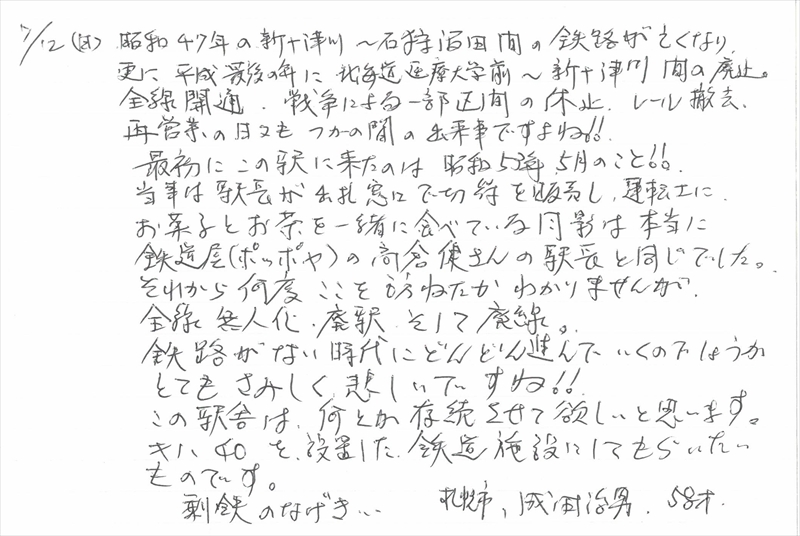 7/12(日) 昭和47年の新十津川～石狩沼田間の鉄路が亡くなり、
更に平成最後の年に北海道医療大学前～新十津川間の廃止。
全線開通、戦争による一部区間の休止、レール撤去、
再営業の日々もつかの間の出来事ですよね!!
最初にこの駅に来たのは昭和5 年、5月のこと!!
当時は駅長が出札窓口で切符を販売し、運転士に
お菓子とお茶を一緒に食べている 影は本当に
鉄道屋(ポッポヤ)の高倉健さんの駅長と同じでした。
それから何度ここを訪ねたかわかりませんが、
全線無人化、廃駅、そして廃線。
鉄路がない時代にどんどん進んでいくのでしょうか
とてもさみしく悲しいですね!!
この駅舎は、何とか存続させて欲しいと思います。
キハ40を設置した鉄道施設にしてもらいたい
ものです。
剰鉄のなげき… 札幌市、成田治男、58才.